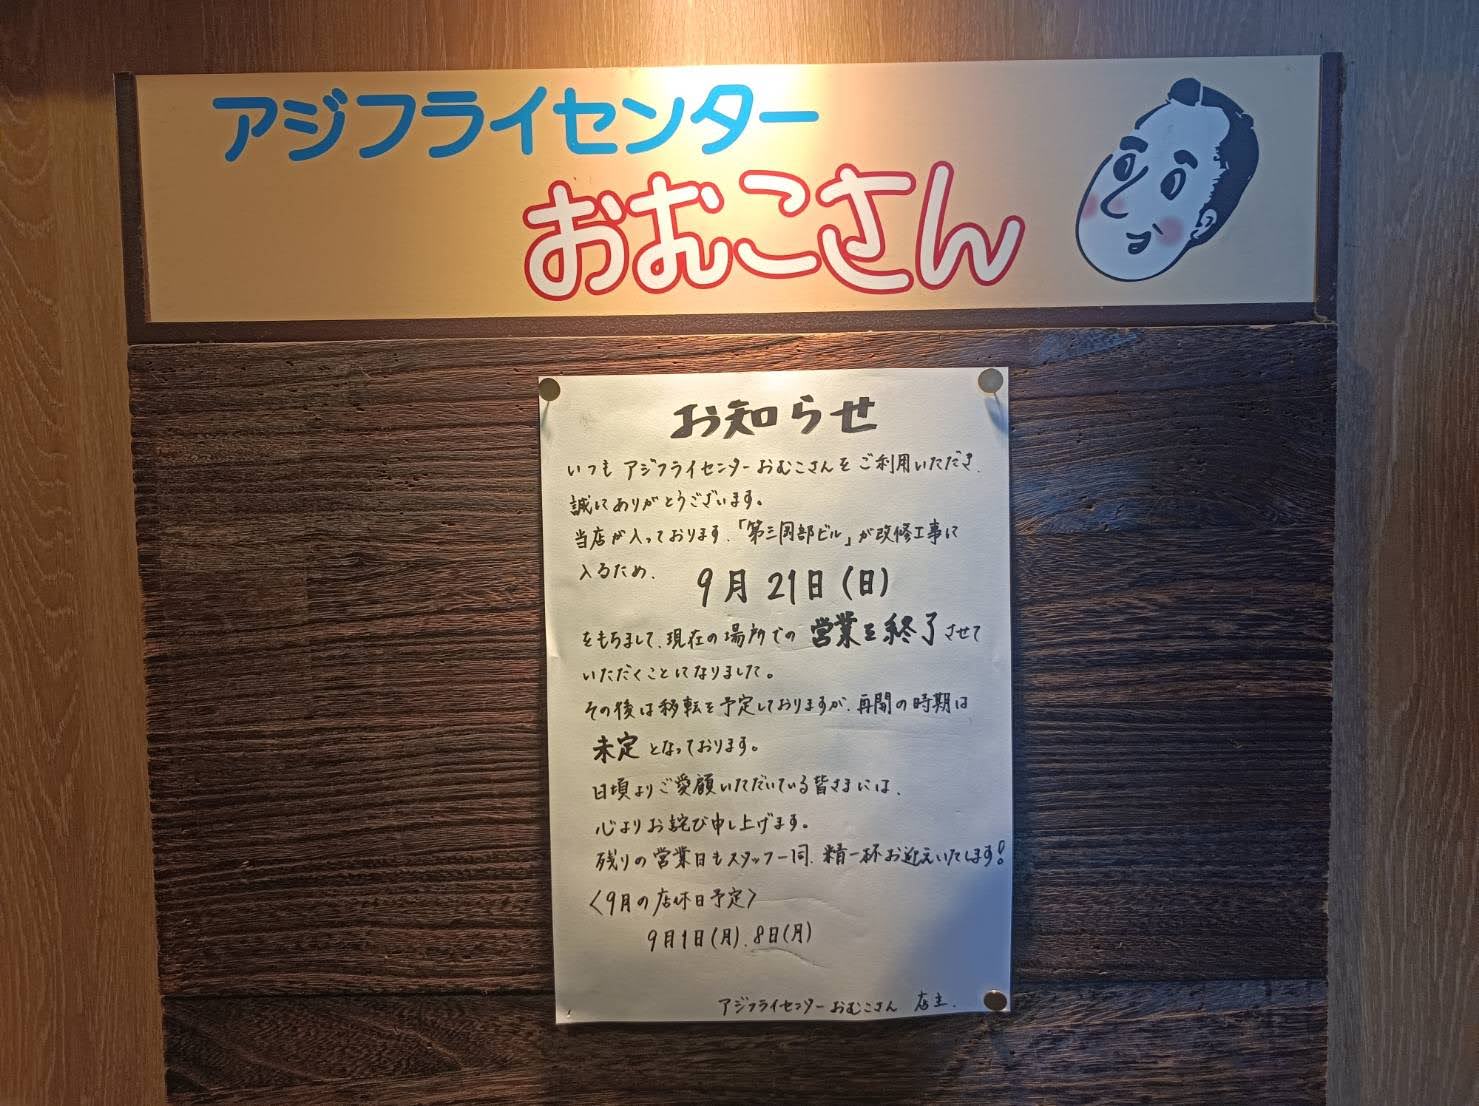 アジフライセンター
おむこさん
お知らせ
いつも アジフライセンターおむこさんを ご利用いただき、
誠にありがとうございます。
当店が入っております、「第三岡部ビル」が改修工事に
入るため、 9月 21日(日)
をもちまして、現在の場所での 営業を終了させて
いただくことになりました。
その後は移転を予定しておりますが、再開の時期は
未定となっております。
日頃よりご愛顧いただいている皆さまには、
心よりお詫び申し上げます。
残りの営業日もスタッフ一同、精一杯お迎えいたします!
〈9月の店休日予定〉
9月1日(月)、8日(月)
アジフライセンターおむこさん 店主.